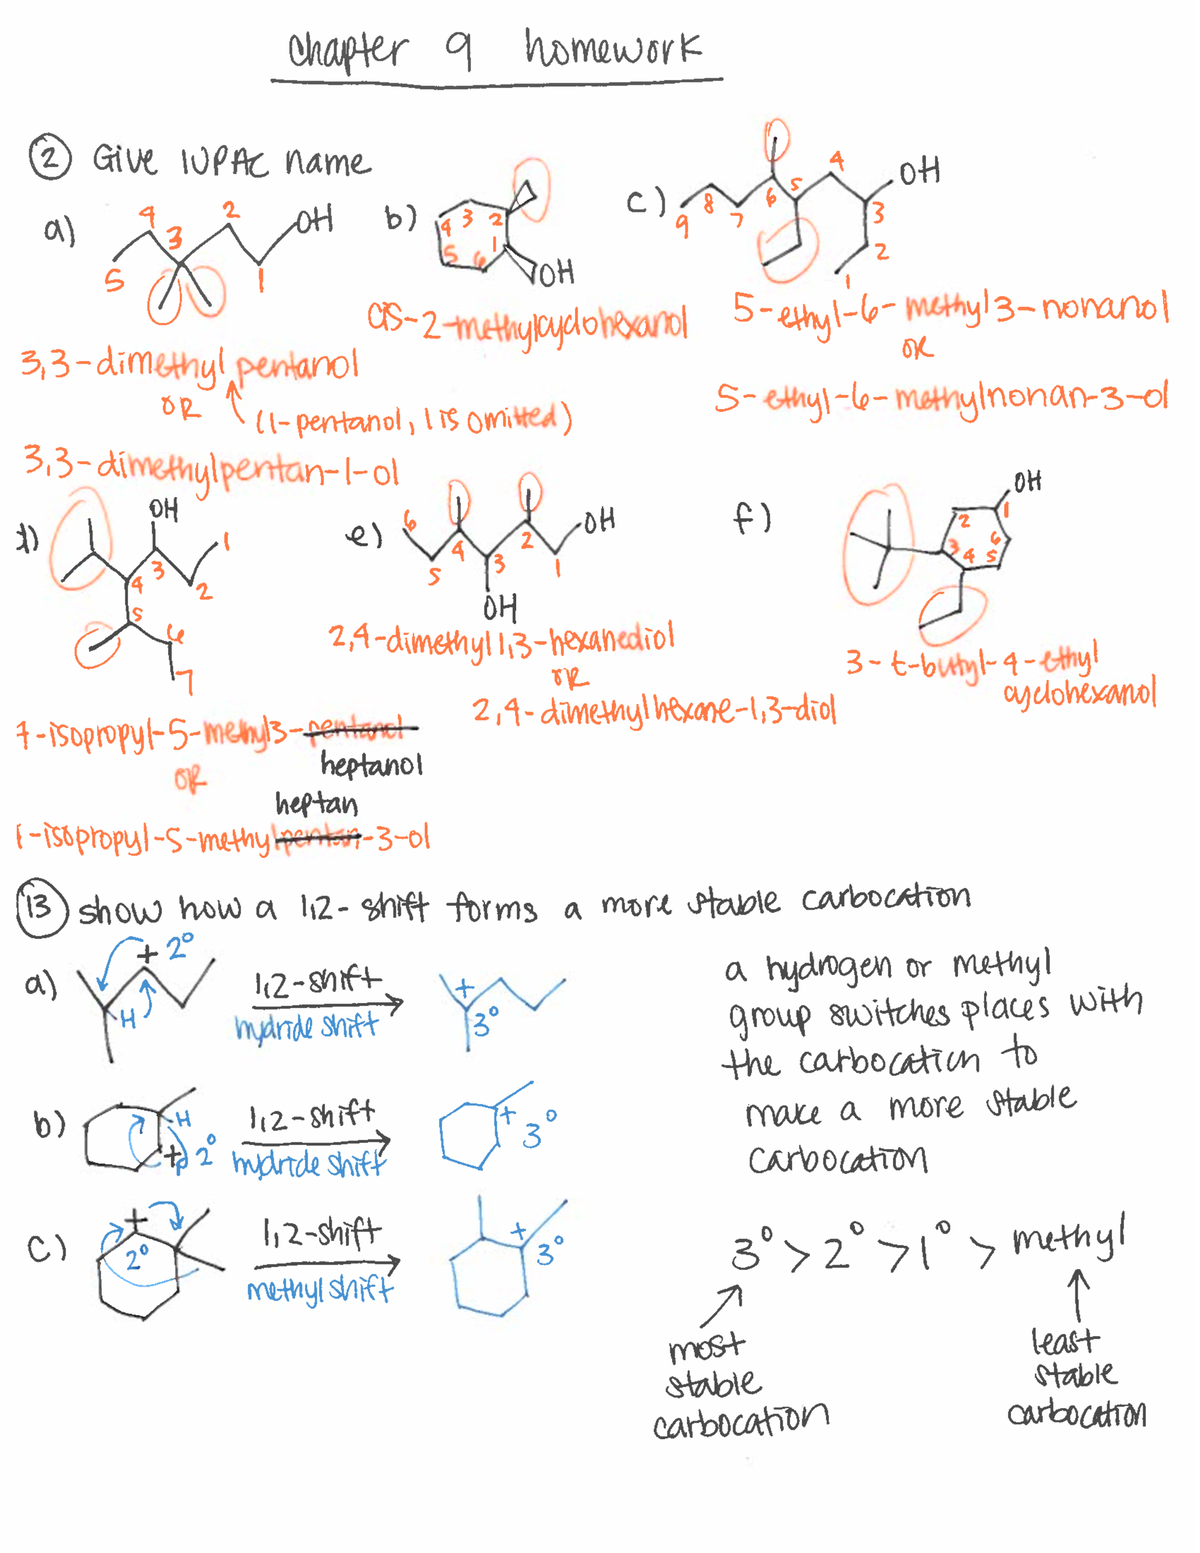 chapter 9 homework
② Give IUPAC name
a) 5 4 3 2 1 OH
b) 4 3 2 1 6 5 OH
c) 9 8 7 6 5 4 3 2 1 OH
cis-2-methylcyclohexanol
5-ethyl-6-methyl3-nonanol
OR
5-ethyl-6-methylnonan-3-ol
3,3-dimethyl pentanol
OR (1-pentanol, 1 is omitted)
3,3-dimethylpentan-1-ol
d) OH 1 2 3 4 5 6 7
e) 6 5 4 3 2 1 OH OH
f) OH 1 2 3 4 5 6
2,4-dimethyl 1,3-hexanediol
OR
2,4-dimethylhexane-1,3-diol
3-t-butyl-4-ethyl
cyclohexanol
-isopropyl-5-methyl3-pentanol
heptanol
OR
heptan
-isopropyl-5-methylpentan-3-ol
⑬ show how a 1,2-shift forms a more stable carbocation
a) + 2° H 1,2-shift + 3°
hydride shift
b) H + 2° 1,2-shift + 3°
hydride shift
c) + 2° 1,2-shift + 3°
methyl shift
a hydrogen or methyl
group switches places with
the carbocation to
make a more stable
carbocation
3° > 2° > 1° > methyl
most
stable
carbocation
least
stable
carbocation